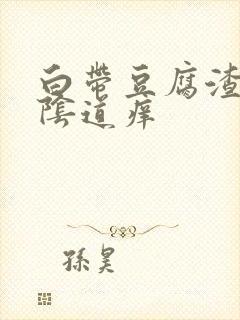 白带豆腐渣
陰道痒
孫昊